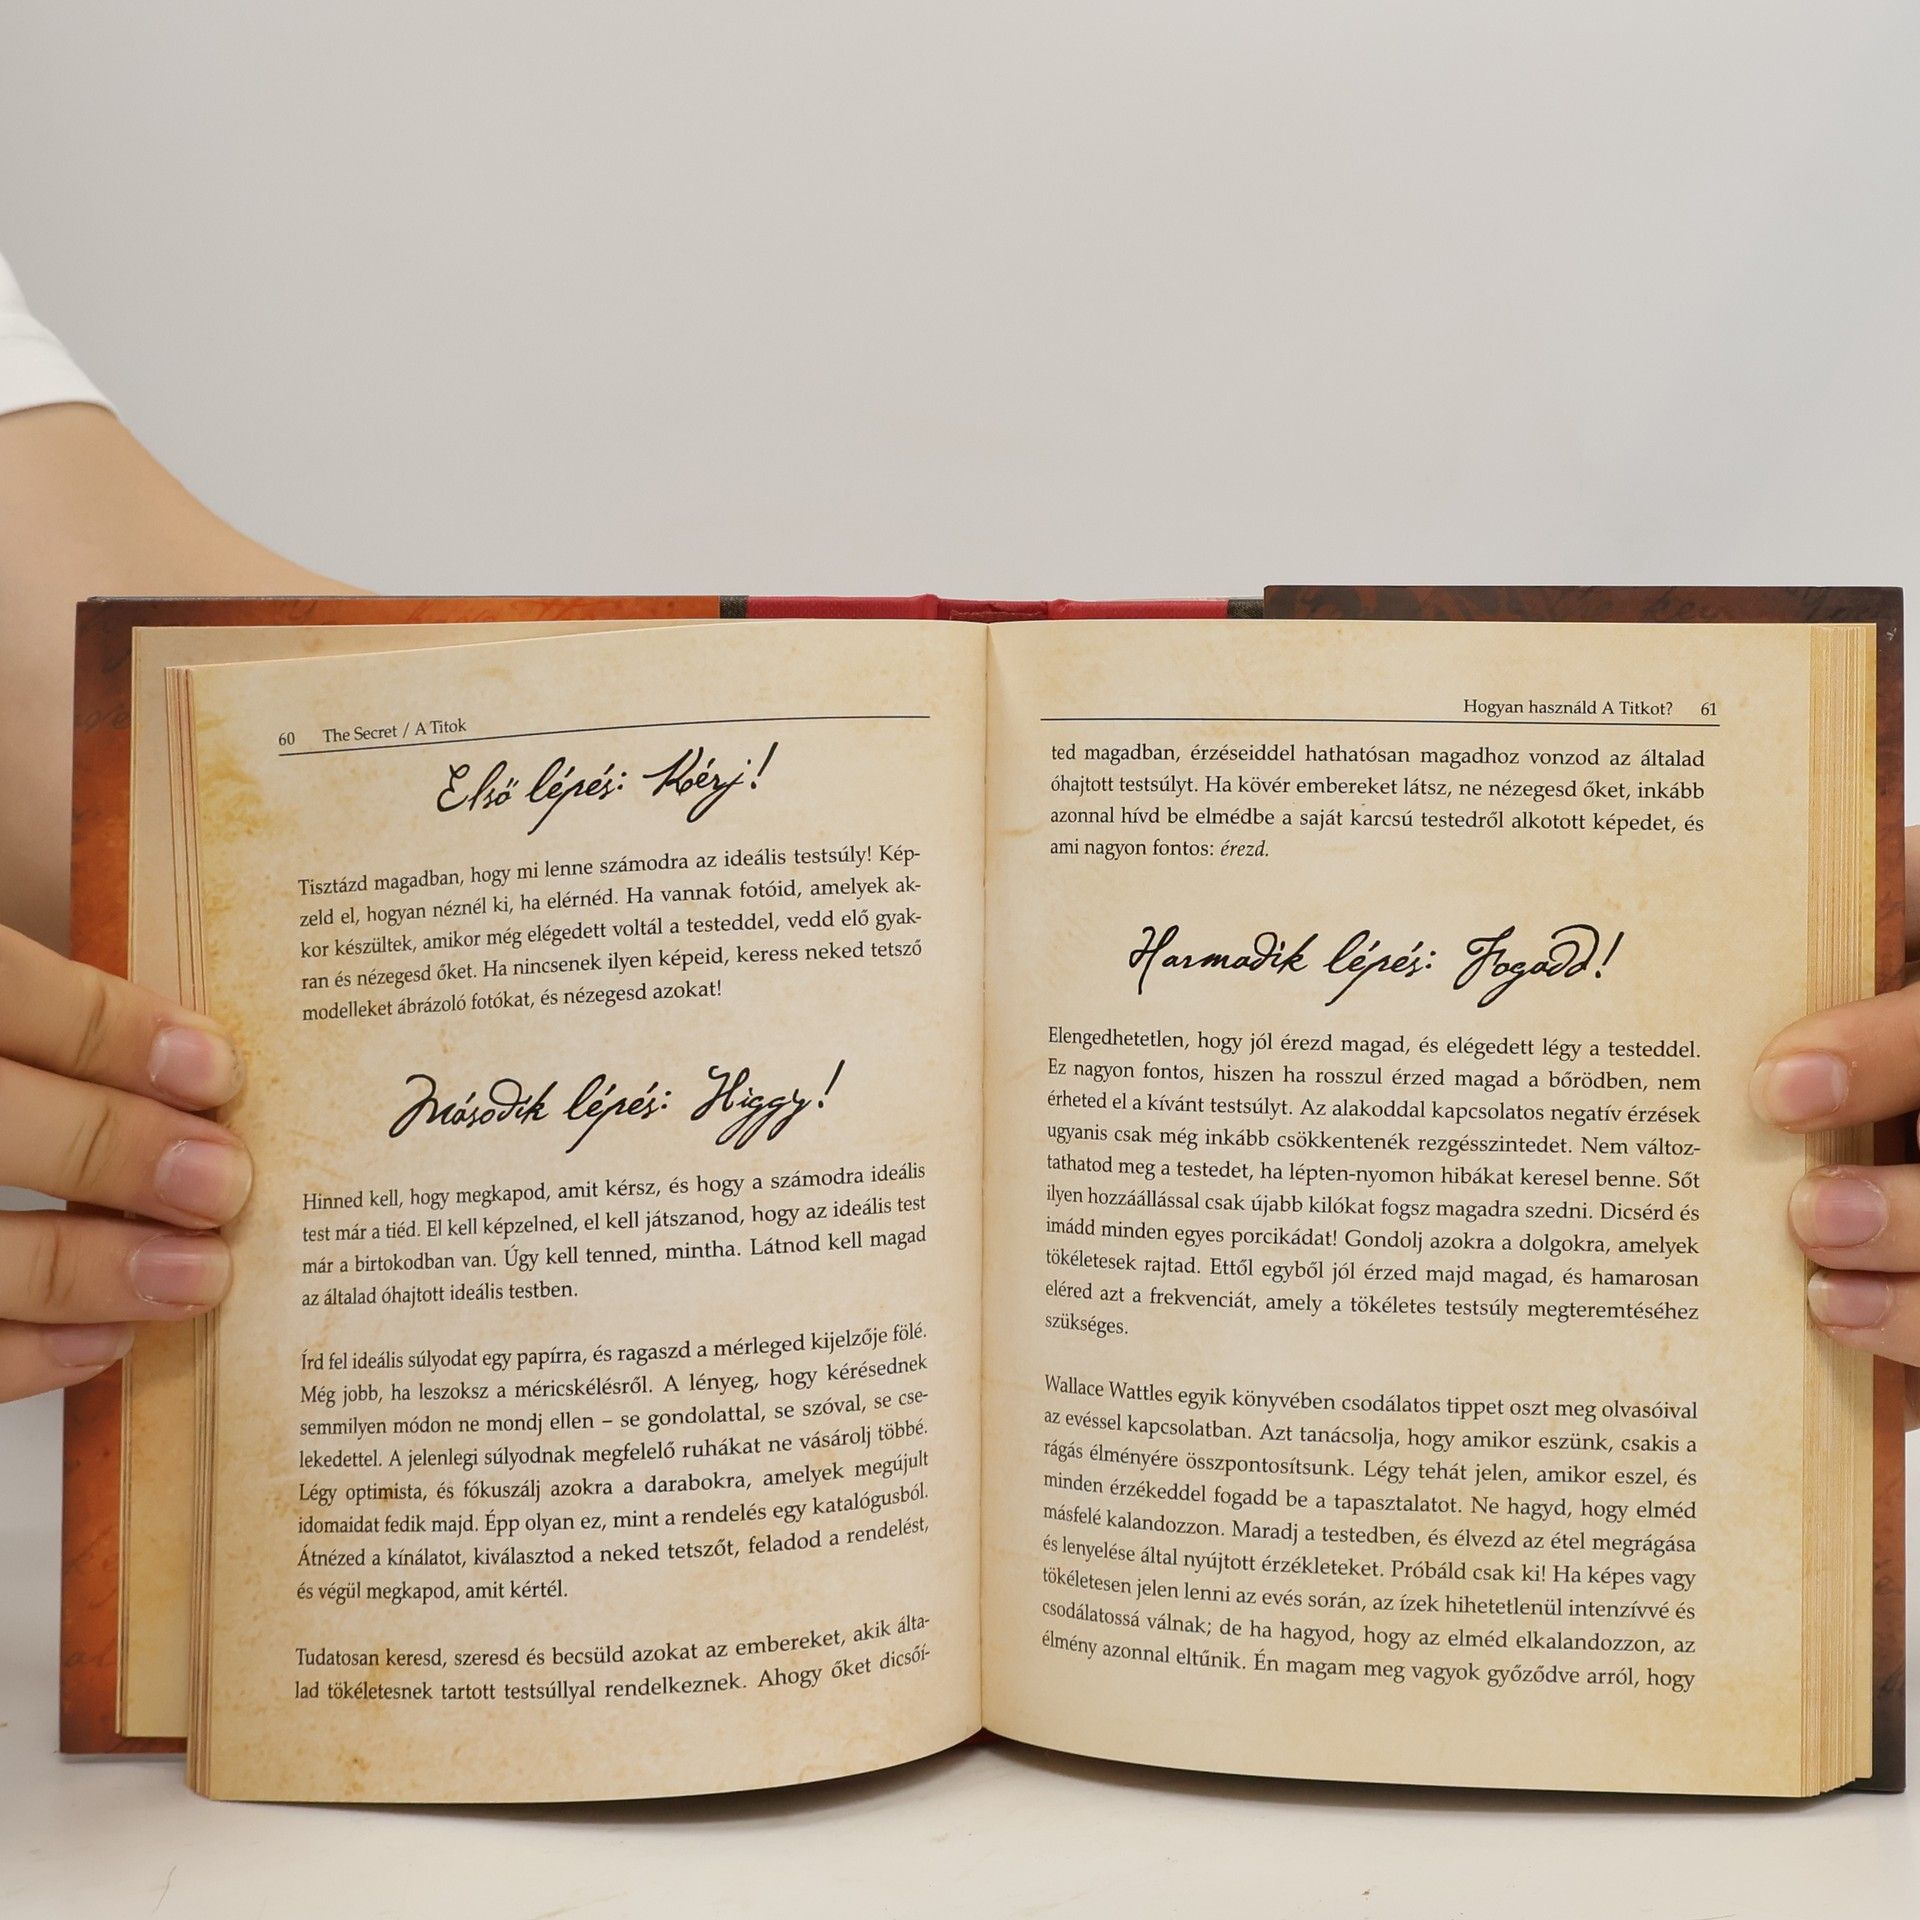 60 The Secret / A Titok
Első lépés: Kérj!
Tisztázd magadban, hogy mi lenne számodra az ideális testsúly! Kép-
zeld el, hogyan néznél ki, ha elérnéd. Ha vannak fotóid, amelyek ak-
kor készültek, amikor még elégedett voltál a testeddel, vedd elő gyak-
ran és nézegesd őket. Ha nincsenek ilyen képeid, keress neked tetsző
modelleket ábrázoló fotókat, és nézegesd azokat!
Második lépés: Higgy!
Hinned kell, hogy megkapod, amit kérsz, és hogy a számodra ideális
test már a tiéd. El kell képzelned, el kell játszanod, hogy az ideális test
már a birtokodban van. Úgy kell tenned, mintha. Látnod kell magad
az általad óhajtott ideális testben.
Írd fel ideális súlyodat egy papírra, és ragaszd a mérleged kijelzője fölé.
Még jobb, ha leszoksz a méricskélésről. A lényeg, hogy kérésednek
semmilyen módon ne mondj ellen – se gondolattal, se szóval, se cse-
lekedettel. A jelenlegi súlyodnak megfelelő ruhákat ne vásárolj többé.
Légy optimista, és fókuszálj azokra a darabokra, amelyek megújult
idomaidat fedik majd. Épp olyan ez, mint a rendelés egy katalógusból.
Átnézed a kínálatot, kiválasztod a neked tetszőt, feladod a rendelést,
és végül megkapod, amit kértél.
Tudatosan keresd, szeresd és becsüld azokat az embereket, akik álta-
lad tökéletesnek tartott testsúllyal rendelkeznek. Ahogy őket dicsőí-
Hogyan használd A Titkot? 61
ted magadban, érzéseiddel hathatósan magadhoz vonzod az általad
óhajtott testsúlyt. Ha kövér embereket látsz, ne nézegesd őket, inkább
azonnal hívd be elmédbe a saját karcsú testedről alkotott képedet, és
ami nagyon fontos: érezd.
Harmadik lépés: Fogadd!
Elengedhetetlen, hogy jól érezd magad, és elégedett légy a testeddel.
Ez nagyon fontos, hiszen ha rosszul érzed magad a bőrödben, nem
érheted el a kívánt testsúlyt. Az alakoddal kapcsolatos negatív érzések
ugyanis csak még inkább csökkentenék rezgésszintedet. Nem változ-
tathatod meg a testedet, ha lépten-nyomon hibákat keresel benne. Sőt
ilyen hozzáállással csak újabb kilókat fogsz magadra szedni. Dicsérd és
imádd minden egyes porcikádat! Gondolj azokra a dolgokra, amelyek
tökéletesek rajtad. Ettől egyből jól érzed majd magad, és hamarosan
eléred azt a frekvenciát, amely a tökéletes testsúly megteremtéséhez
szükséges.
Wallace Wattles egyik könyvében csodálatos tippet oszt meg olvasóival
az evéssel kapcsolatban. Azt tanácsolja, hogy amikor eszünk, csakis a
rágás élményére összpontosítsunk. Légy tehát jelen, amikor eszel, és
minden érzékeddel fogadd be a tapasztalatot. Ne hagyd, hogy elméd
másfelé kalandozzon. Maradj a testedben, és élvezd az étel megrágása
és lenyelése által nyújtott érzékleteket. Próbáld csak ki! Ha képes vagy
tökéletesen jelen lenni az evés során, az ízek hihetetlenül intenzívvé és
csodálatossá válnak; de ha hagyod, hogy az elméd elkalandozzon, az
élmény azonnal eltűnik. Én magam meg vagyok győződve arról, hogy